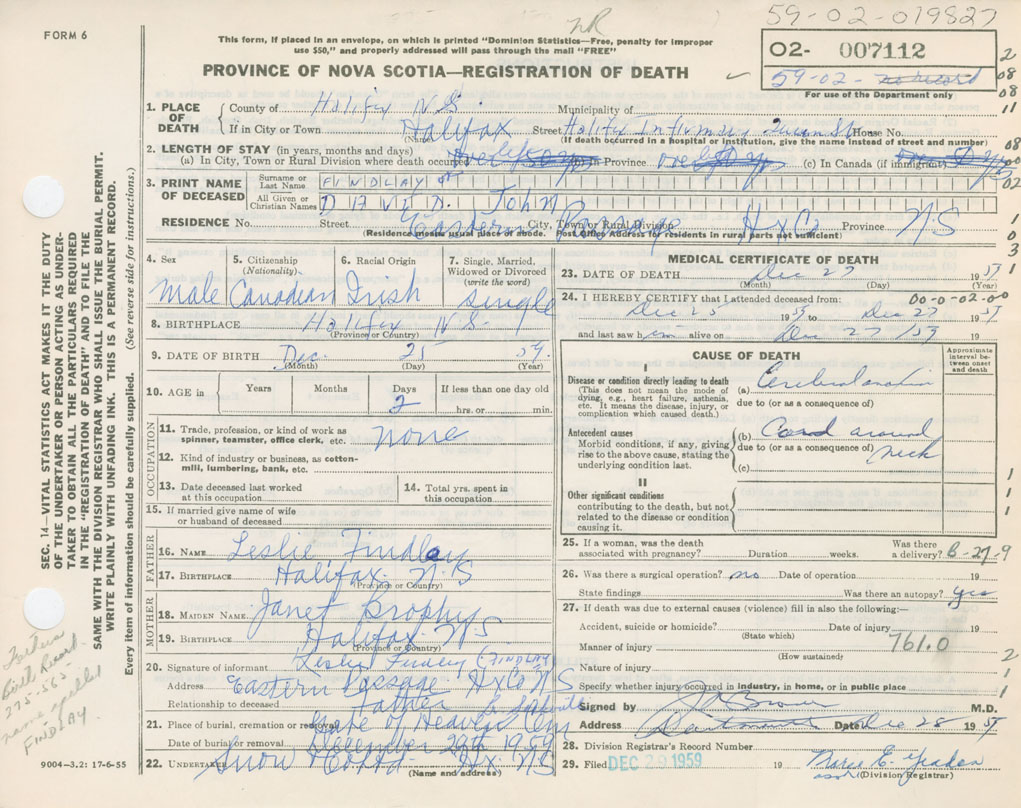 59-02-019827
FORM 6
NR
This form, if placed in an envelope, on which is printed "Dominion Statistics—Free, penalty for improper
use $50," and properly addressed will pass through the mail "FREE"
02- 007112
59-02-
For use of the Department only
PROVINCE OF NOVA SCOTIA—REGISTRATION OF DEATH
1. PLACE OF DEATH
County of Halifx N.S. Municipality of
If in City or Town Halifax Street Halifx Infirmary Queen St House No.
(Name) (If death occurred in a hospital or institution, give the name instead of street and number)
2. LENGTH OF STAY (in years, months and days)
(a) In City, Town or Rural Division where death occurred (b) In Province (c) In Canada (if immigrant)
3. PRINT NAME OF DECEASED
Surname or Last Name FINDLAY
All Given or Christian Names DAVID. JOHN
RESIDENCE No. Street Eastern Passage City, Town or Rural Division HxCo Province N.S
(Residence means usual place of abode. Post Office Address for residents in rural parts not sufficient)
4. Sex Male
5. Citizenship (Nationality) Canadian
6. Racial Origin Irish
7. Single, Married, Widowed or Divorced (write the word) Single
8. BIRTHPLACE Halifx N.S.
(Province or Country)
9. DATE OF BIRTH Dec. 25 59.
(Month) (Day) (Year)
10. AGE in Years Months Days 2 If less than one day old hrs. or min.
OCCUPATION
11. Trade, profession, or kind of work as spinner, teamster, office clerk, etc. none
12. Kind of industry or business, as cotton-mill, lumbering, bank, etc.
13. Date deceased last worked at this occupation
14. Total yrs. spent in this occupation
15. If married give name of wife or husband of deceased
FATHER
16. NAME Leslie Findlay
17. BIRTHPLACE Halifax N.S
(Province or Country)
MOTHER
18. MAIDEN NAME Janet Brophy
19. BIRTHPLACE Halifax N.S
(Province or Country)
20. Signature of informant Leslie Finlay (FINDLAY)
Address Eastern Passage HxCo N S
Relationship to deceased Father
21. Place of burial, cremation or removal Gate of Heaven Cem
Date of burial or removal December 29th 1959
22. UNDERTAKER Snow Hx NS
(Name and address)
MEDICAL CERTIFICATE OF DEATH
23. DATE OF DEATH Dec 27 1959
(Month) (Day) (Year)
24. I HEREBY CERTIFY that I attended deceased from: 00-0-02-00
Dec 25 1959 to Dec 27 1959
and last saw him alive on Dec 27/59
CAUSE OF DEATH
Approximate interval between onset and death
I
Disease or condition directly leading to death
(This does not mean the mode of dying, e.g., heart failure, asthenia, etc. It means the disease, injury, or complication which caused death.)
(a) Cerebral anoxia
due to (or as a consequence of)
Antecedent causes
Morbid conditions, if any, giving rise to the above cause, stating the underlying condition last.
(b) Cord around neck
due to (or as a consequence of)
(c)
II
Other significant conditions
contributing to the death, but not related to the disease or condition causing it.
25. If a woman, was the death associated with pregnancy? Duration weeks. Was there a delivery? B-27-9
26. Was there a surgical operation? no Date of operation 19
State findings Was there an autopsy? yes
27. If death was due to external causes (violence) fill in also the following:—
Accident, suicide or homicide? Date of injury 19
(State which) 761.0
Manner of injury
(How sustained)
Nature of injury
Specify whether injury occurred in industry, in home, or in public place
Signed by M.D.
Address Dartmouth Date Dec 28 1959
28. Division Registrar's Record Number
29. Filed DEC 29 1959 19 Marie E.
(Division Registrar)
9004-3.2: 17-6-55
SEC. 14—VITAL STATISTICS ACT MAKES IT THE DUTY
OF THE UNDERTAKER OR PERSON ACTING AS UNDER-
TAKER TO OBTAIN ALL THE PARTICULARS REQUIRED
IN THE "REGISTRATION OF DEATH" AND TO FILE THE
SAME WITH THE DIVISION REGISTRAR WHO SHALL ISSUE THE BURIAL PERMIT.
WRITE PLAINLY WITH UNFADING INK. THIS IS A PERMANENT RECORD.
Every item of information should be carefully supplied. (See reverse side for instructions.)
Fathers
Birth Record
275-565
name spelled
FINDLAY.
2
08
08
11
08
00
02
1
0
3
1
1
1
1
2
1
1